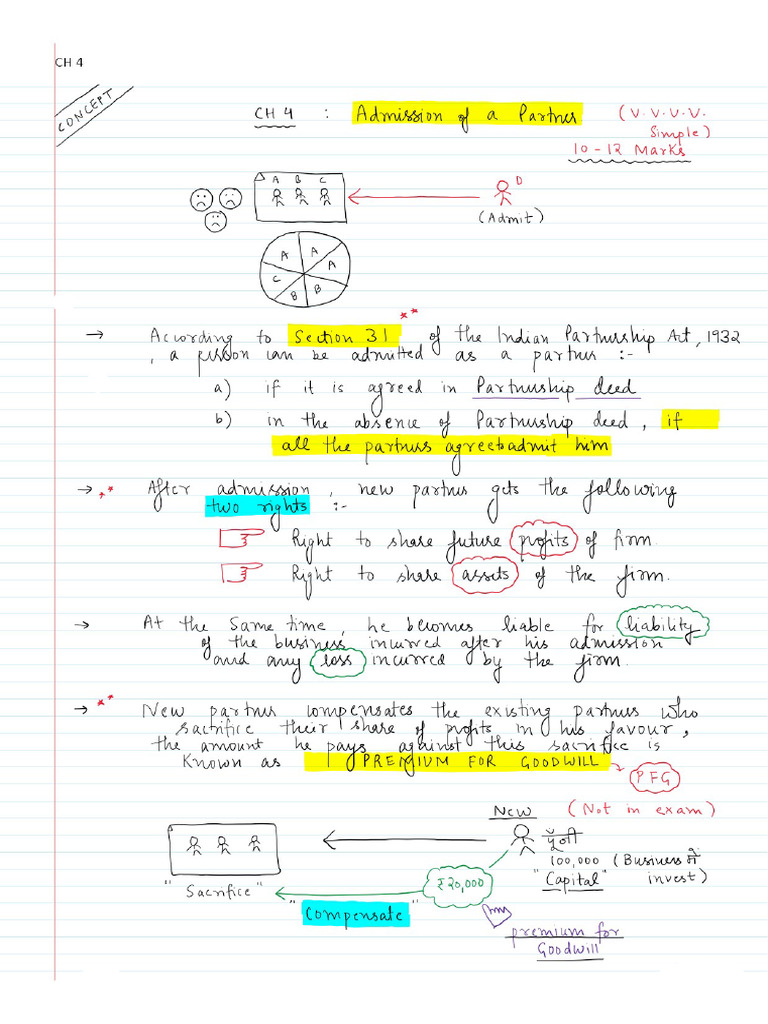 CH 4
CONCEPT
CH 4 : Admission of a Partner (V.V.V.V. Simple)
10-12 Marks
A B C
D
(Admit)
A A
C A
B B
→ According to Section 31 ** of the Indian Partnership Act, 1932
, a person can be admitted as a partner :-
a) if it is agreed in Partnership deed
b) in the absence of Partnership deed, if
all the partners agree to admit him
→ ** After admission, new partner gets the following
two rights :-
Right to share future profits of firm.
Right to share assets of the firm.
→ At the same time, he becomes liable for liability
of the business incurred after his admission
and any loss incurred by the firm.
→ ** New partner compensates the existing partners who
sacrifice their share of profits in his favour,
the amount he pays against this sacrifice is
known as PREMIUM FOR GOODWILL → PFG
New (Not in exam)
पूँजी
100,000 (Business में
"Capital" invest)
"Sacrifice"
₹20,000
"Compensate"
premium for
Goodwill